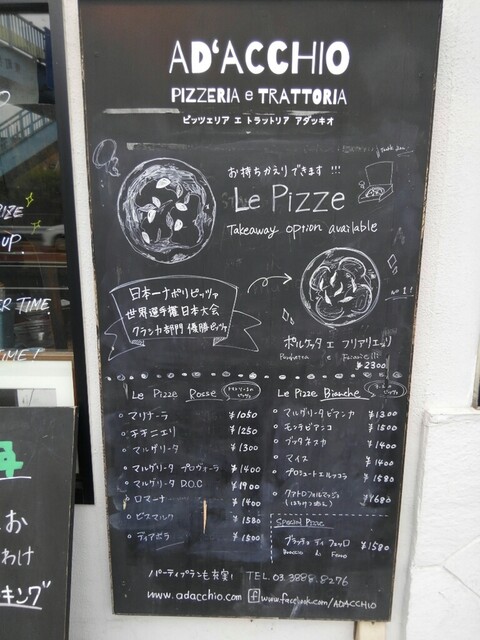 AD'ACCHIO
PIZZERIA e TRATTORIA
ピッツェリア エ トラットリア アダッキオ
お持ちかえりできます!!!
Le Pizze
Takeaway option available
日本一ナポリピッツァ
世界選手権日本大会
クラシカ部門 優勝ピッツァ
No 1!
ポルケッタ エ フリアリエッリ
Porchetta e Friarielli
¥2300
Le Pizze Rosse
マリナーラ ¥1050
チチニエリ ¥1250
マルゲリータ ¥1300
マルゲリータ プロヴォーラ ¥1400
マルゲリータ D.O.C ¥1900
ロマーナ ¥1400
ビスマルク ¥1530
ディアボラ ¥1500
Le Pizze Bianche
マルゲリータビアンカ ¥1300
モンテビアンコ ¥1500
プッタネスカ ¥1400
マイス ¥1400
プロシュートエルッコラ ¥1580
クアトロフォルマッジョ ¥1680
(はちみつ添え)
Special Pizze
ブラッチョ ディ フェッロ ¥1580
Braccio di Ferro
パーティプランも充実!
TEL.03.3888.8276
www.adacchio.com
f www.facebook.com/ADACCHIO
RIZE
UP.
TIME.
TIME!
お
わけ
キング